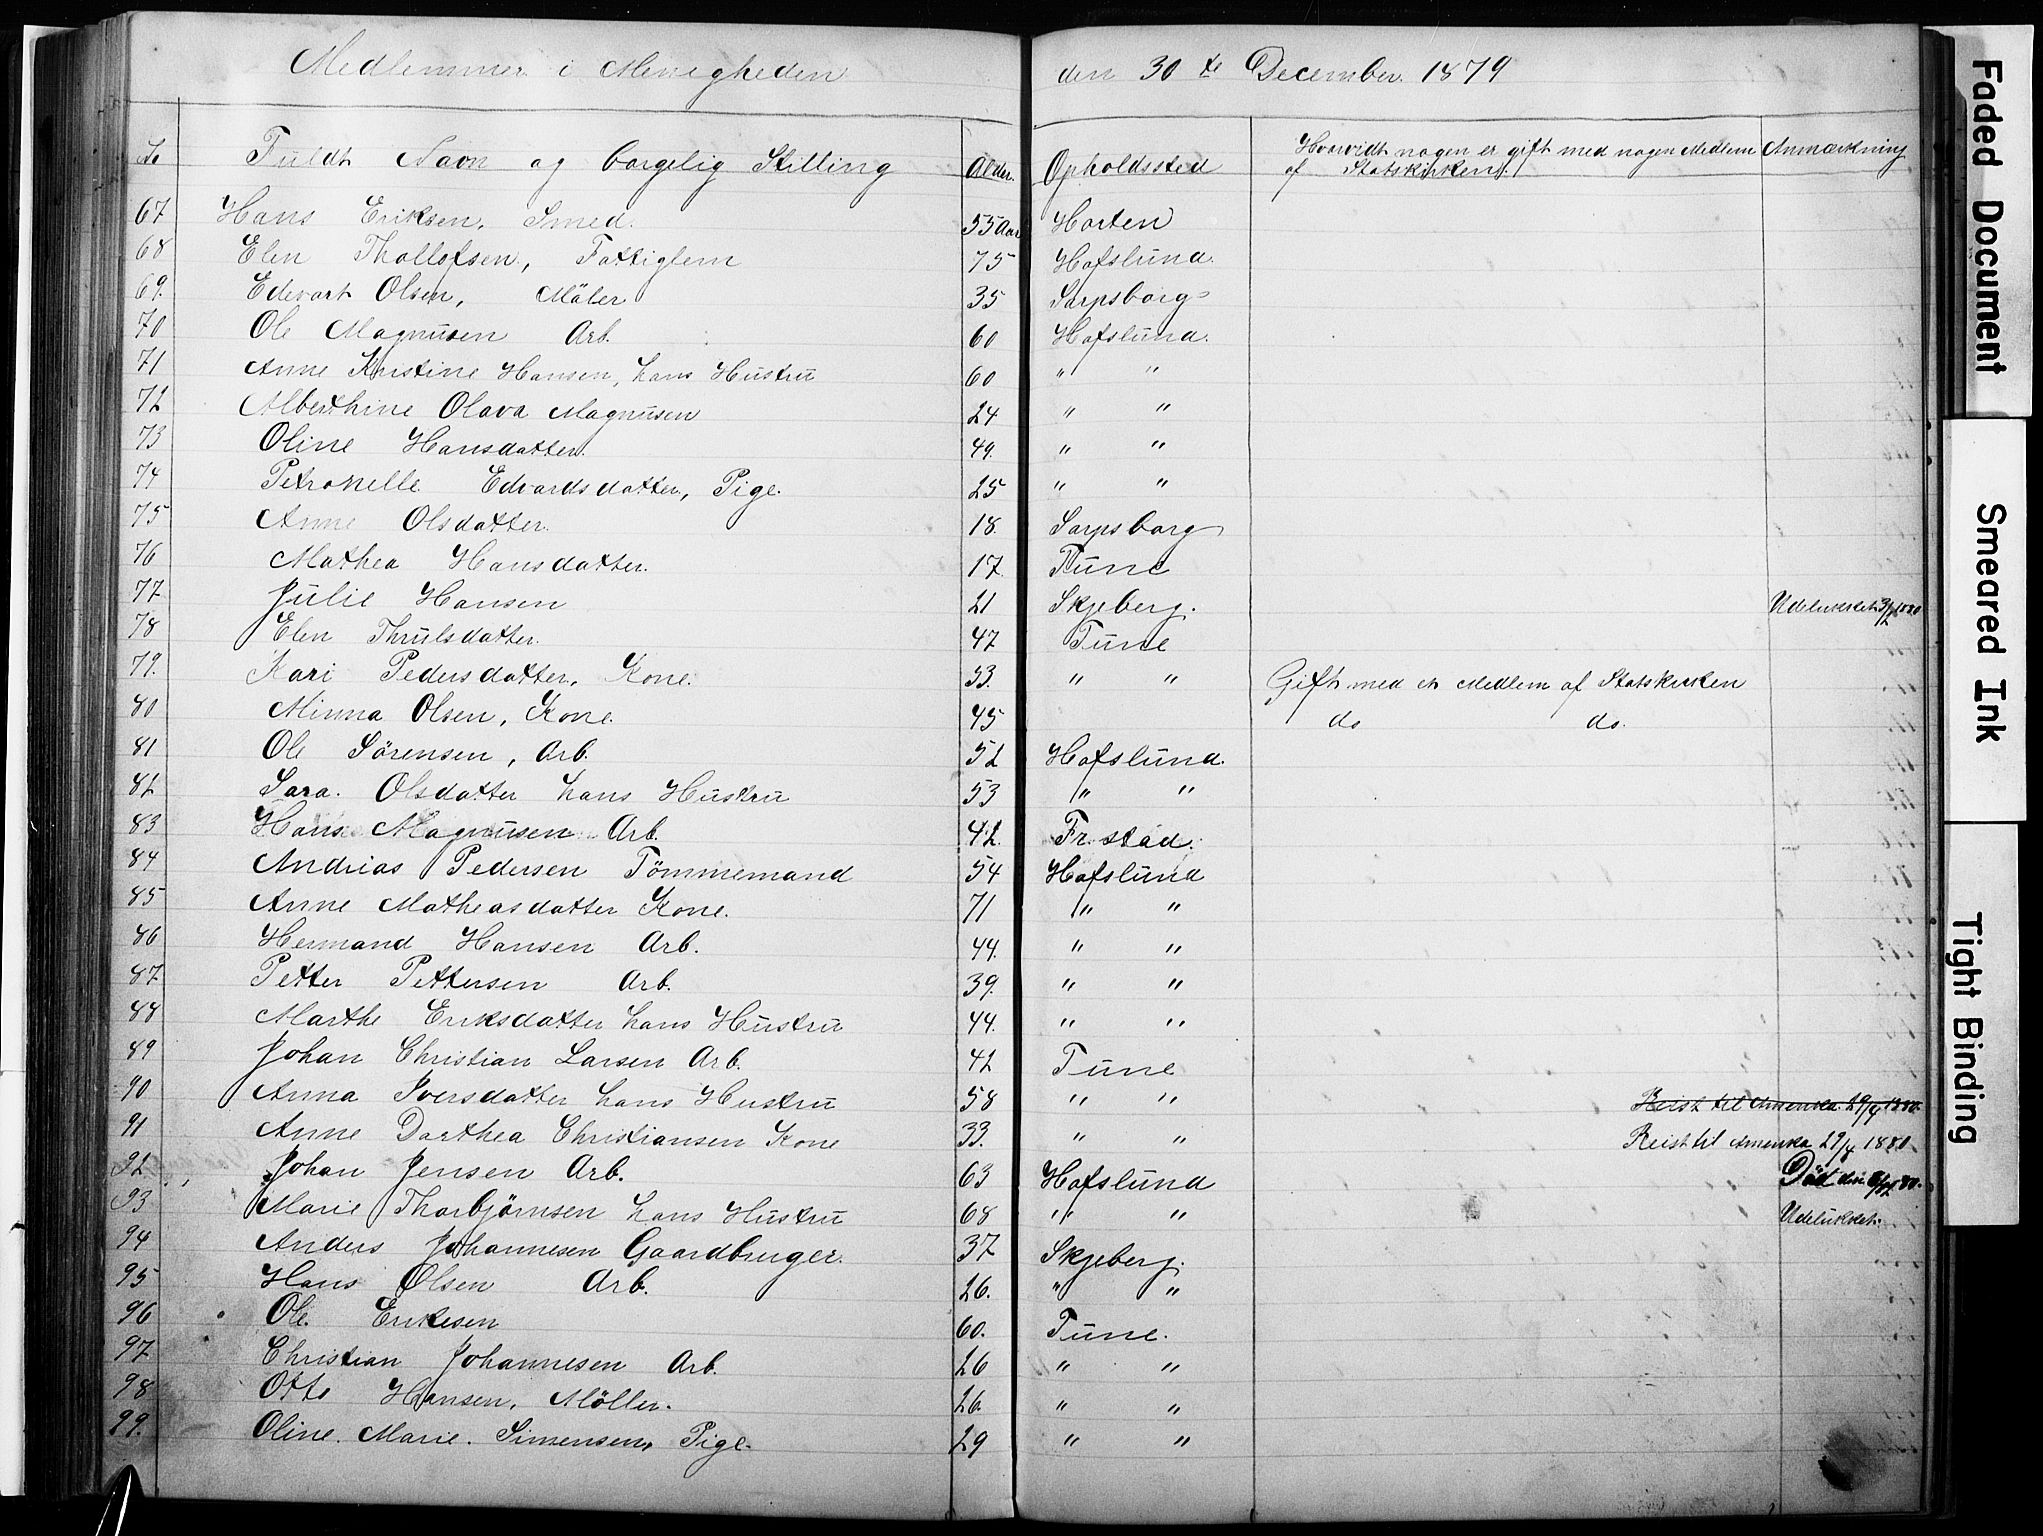 Medlemmer i Menigheden den 30te December 1879
No Fuldt Navn og borgelig Stilling Alder. Opholdssted Hvorvidt nogen er gift med nogen Medlem Anmærkning
af Statskirken.
67 Hans Eriksen, Smed. 55 Aar Horten
68 Elen Thollofsen, Fattiglem 75 Hafslund.
69. Edevart Olsen, Mäler 35 Sarpsborg
70 Ole Magnusen Arb. 60 Hafslund.
71 Anne Kristine Hansen, hans Hustru 60 " "
72 Alberthine Olava Magnusen 24 " "
73 Oline Hansdatter. 49. " "
74 Petronelle Edvardsdatter, Pige. 25 " "
75 Anne Olsdatter. 18. Sarpsborg
76 Mathea Hansdatter. 17. Tune
77 Julie Hansen 21 Skjeberg. Udelukket 3/2 1880
78 Elen Thrulsdatter. 47 Tune
79. Kari Pedersdatter, Kone. 53. " " Gift med et Medlem af Statskirken
80 Minna Olsen, Kone. 45 do do.
81 Ole Sörensen, Arb. 52 Hafslund.
82 Sara. Olsdatter hans Hustru 53 " "
83 Hans Magnusen Arb. 42. Fr.stad.
84 Andrias Pedersen Tömmemand 54 Hafslund
85 Anne Matheasdatter Kone. 71 " "
86 Hermand Hansen Arb. 44. " "
87 Petter Pettersen Arb. 39. " "
88 Marthe Eriksdatter hans Hustru 44. " "
89 Johan Christian Larsen Arb. 42 Tune
90 Anna Iversdatter hans Hustru 58 " " Reist til Amerika 29/4 1880.
91 Anne Darthea Christiansen Kone 33. " " Reist til Amerika 29/4 1880.
92 Johan Jensen Arb. 63 Hafslund Död den 80.
93 Marie Tharbjörnsen hans Hustru 68 " " Udelukket.
94 Anders Johannesen Gaardbruger. 37 Skjeberg.
95 Hans Olsen Arb. 26. " "
96 Ole. Eriksen 60. Tune.
97 Christian Johannesen Arb. 26 " "
98 Otto Hansen, Möller. 26. " "
99. Oline. Marie. Simensen, Pige. 29 " "
Faded Document
Smeared Ink
Tight Binding